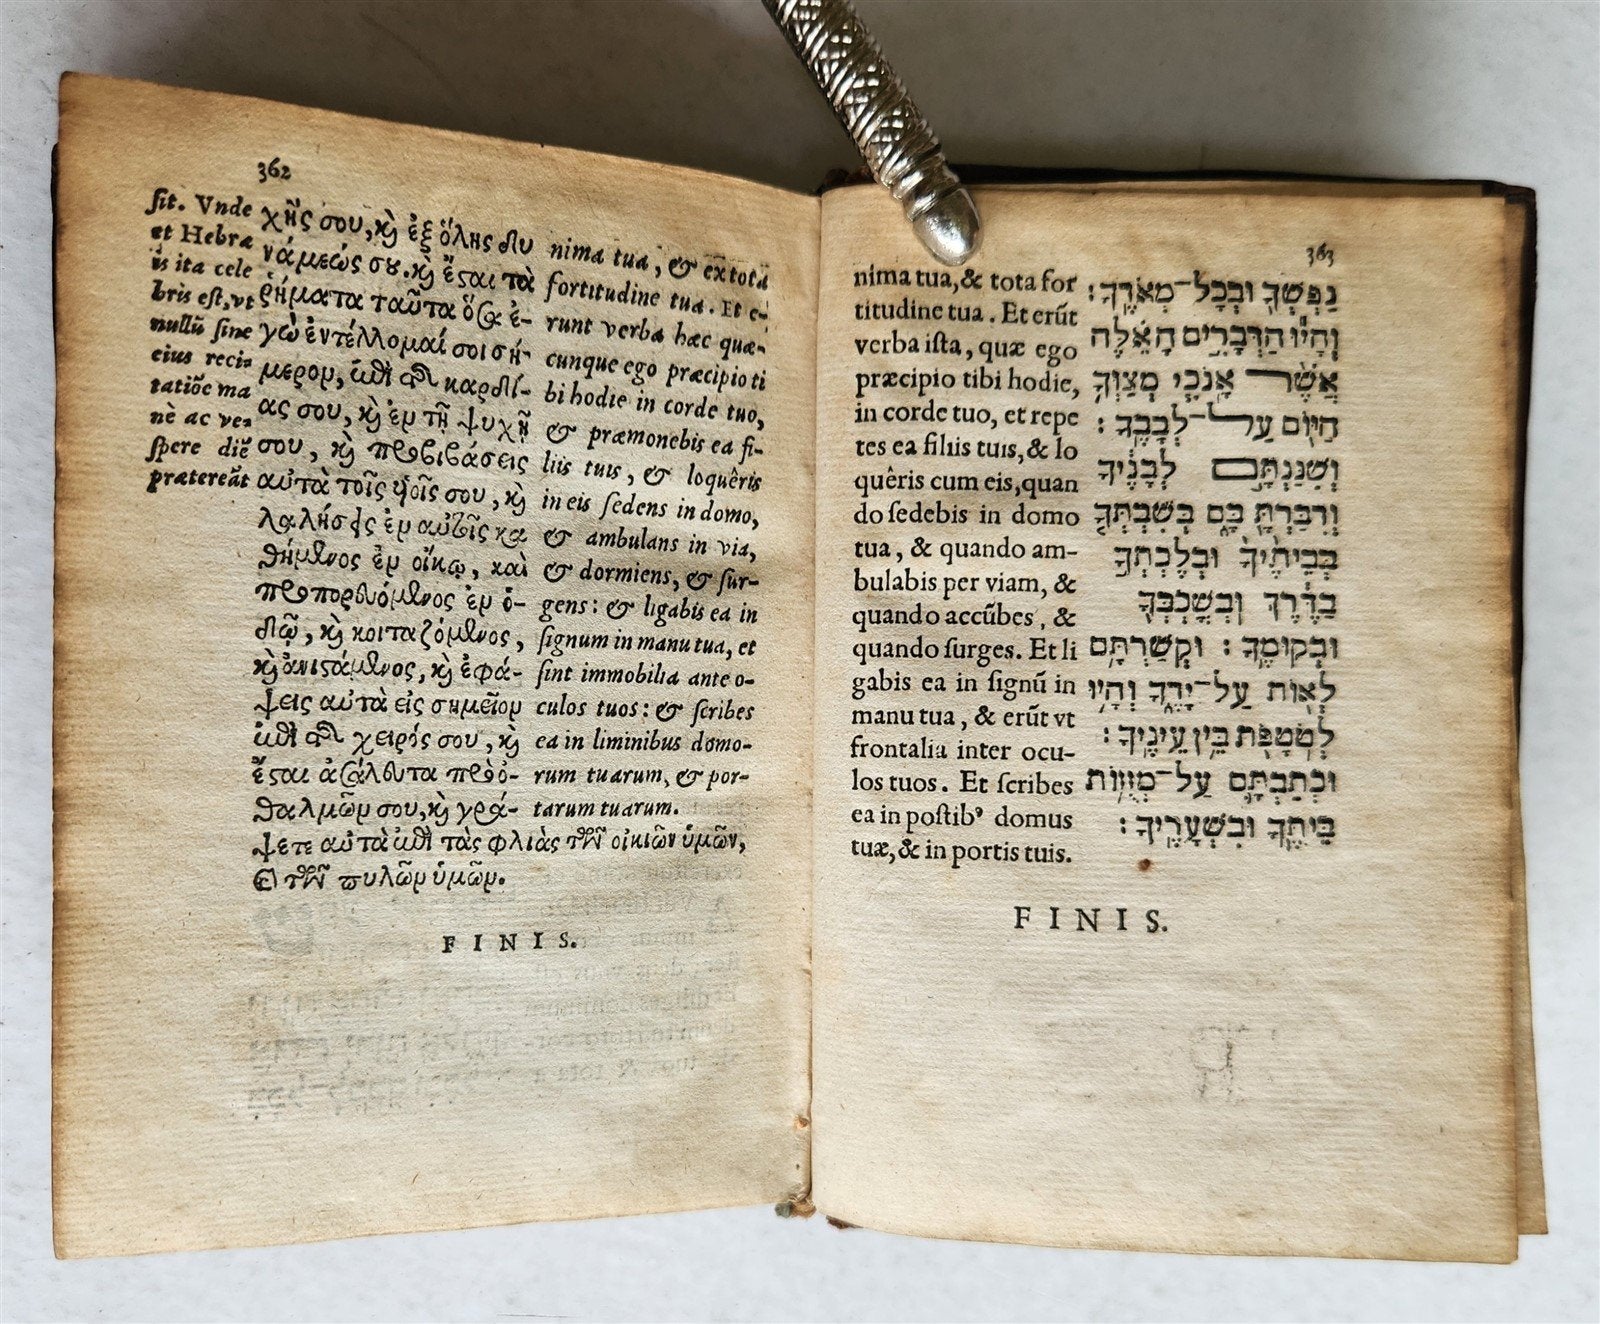 362
sit. Vnde
et Hebræ
is ita cele
bris est, vt
nullũ sine
eius reci=
tatiõe ma
nè ac ve=
spere diẽ
prætereãt
χῆς σου, κỳ ἐξ ὅλης δυ
νάμεώς σου. κỳ ἔςαι τὰ
ῥήματα ταῦτα ὅσα ἐ-
γὼ ἐντέλλομαί σοι σή-
μερον, ἐπὶ τὴν καρδί-
ας σου, κỳ ἐν τῇ ψυχῇ
σου, κỳ προβιβάσεις
αὐτὰ τοῖς υἱοῖς σου, κỳ
λαλήσεις ἐν αὐτοῖς κα
θήμενος ἐν οἴκῳ, καὶ
πορευόμενος ἐν ὁ-
δῷ, κỳ κοιταζόμενος,
κỳ ἀνιςάμενος, κỳ ἐφά-
ψεις αὐτὰ εἰς σημεῖον
ἐπὶ τὴν χειρός σου, κỳ
ἔςαι ἀσάλευτα πρὸ ὀ-
θαλμῶν σου, κỳ γρά-
ψετε αὐτὰ ἐπὶ τὰς φλιὰς τῶν οἰκιῶν ὑμῶν,
ϗ τῶν πυλῶν ὑμῶν.
nima tua, & ex tota
fortitudine tua. Et e-
runt verba hæc quæ-
cunque ego præcipio ti
bi hodie in corde tuo,
& præmonebis ea fi-
liis tuis, & loquêris
in eis sedens in domo,
& ambulans in via,
& dormiens, & sur-
gens: & ligabis ea in
signum in manu tua, et
sint immobilia ante o-
culos tuos: & scribes
ea in liminibus domo-
rum tuarum, & por-
tarum tuarum.
FINIS.
363
nima tua, & tota for
titudine tua. Et erũt
verba ista, quæ ego
præcipio tibi hodie,
in corde tuo, et repe
tes ea filiis tuis, & lo
quêris cum eis, quan
do sedebis in domo
tua, & quando am-
bulabis per viam, &
quando accũbes, &
quando surges. Et li
gabis ea in signũ in
manu tua, & erũt vt
frontalia inter ocu-
los tuos. Et scribes
ea in postibꝰ domus
tuæ, & in portis tuis.
נַפְשְׁךָ וּבְכָל־מְאֹדֶךָ׃
וְהָיוּ הַדְּבָרִים הָאֵלֶּה
אֲשֶׁר אָנֹכִי מְצַוְּךָ
הַיּוֹם עַל־לְבָבֶךָ׃
וְשִׁנַּנְתָּם לְבָנֶיךָ
וְדִבַּרְתָּ בָּם בְּשִׁבְתְּךָ
בְּבֵיתֶיךָ וּבְלֶכְתְּךָ
בַדֶּרֶךְ וּבְשָׁכְבְּךָ
וּבְקוּמֶךָ׃ וּקְשַׁרְתָּם
לְאוֹת עַל־יָדֶךָ וְהָיוּ
לְטֹטָפֹת בֵּין עֵינֶיךָ׃
וּכְתַבְתָּם עַל־מְזֻזוֹת
בֵּיתֶךָ וּבִשְׁעָרֶיךָ׃
FINIS.